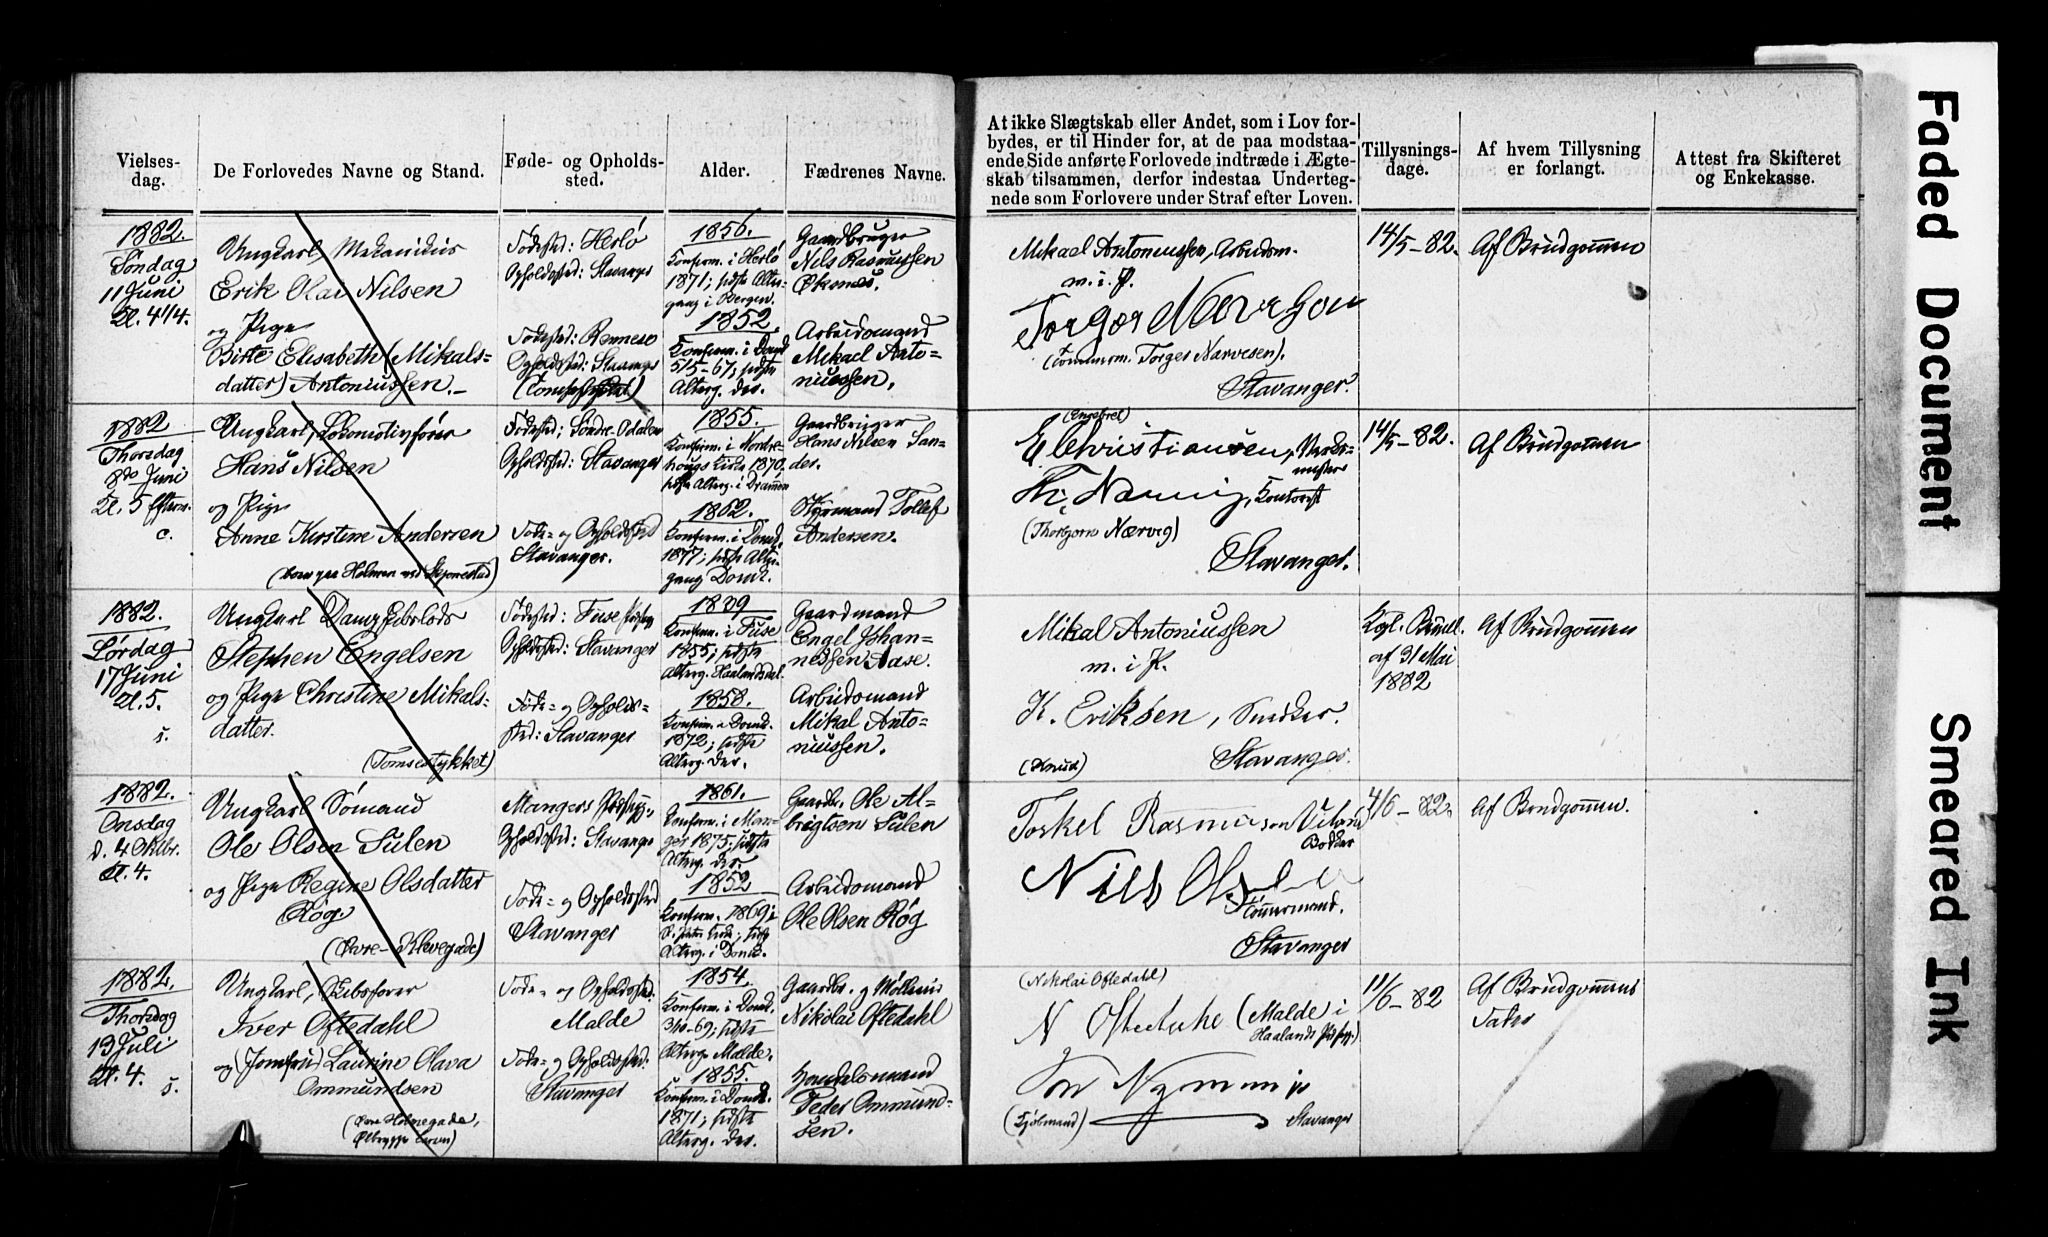 Vielses-
dag.
De Forlovedes Navne og Stand.
Føde- og Opholds-
sted.
Alder.
Fædrenes Navne.
At ikke Slægtskab eller Andet, som i Lov for-
bydes, er til Hinder for, at de paa modstaa-
ende Side anførte Forlovede indtræde i Ægte-
skab tilsammen, derfor indestaa Underteg-
nede som Forlovere under Straf efter Loven.
Tillysnings-
dage.
Af hvem Tillysning
er forlangt.
Attest fra Skifteret
og Enkekasse.
1882.
Søndag
11 Juni
Kl. 4 1/4.
Ungkarl, Mekanikus
Erik Olai Nilsen
og Pige
Birte Elisabeth (Mikals-
datter) Antoniussen.
Fødested: Herlø
Opholdssted: Stavanger
Fødested: Rennesø
Opholdssted: Stavanger
1856.
Konfirm. i Herlø
1871; sidste Alter-
gang i Bergen.
1852
Konfirm. i Domk.
5/5-67; sidste
Alterg. der.
Gaardbruger
Nils Rasmussen
Øknes.
Arbeidsmand
Mikael Anto-
niussen.
Mikael Antoniussen, Arbeidsm.
m. i. P.
Torger Narveson
(Tømmerm. Torger Narvesen).
Stavanger.
14/5-82.
Af Brudgommen
1882
Thorsdag
8de Juni
Kl. 5 Efterm.
c.
Ungkarl, Lokomotivfører
Hans Nilsen
og Pige
Anne Kirstine Andersen
Fødested: Søndre Odalen
Opholdssted: Stavanger
Føde- og Opholdssted
Stavanger.
1855.
Konfirm. i Nordre-
hougs Kirke 1870,
sidste Alterg. i Drammen
1862.
Konfirm. i Domk.
1877; sidste Alter-
gang Domk.
Gaardbruger
Hans Nilsen San-
der.
Styrmand Tollef
Andersen.
(Engebret)
E Christiansen, Værks-
mester
Th. Nærvig, Kontorist
(Thorbjørn Nærvig)
Stavanger.
14/5-82.
Af Brudgommen
1882.
Lørdag
17 Juni
Kl. 5.
s.
Ungkarl, Dampskibslods
Stephen Engelsen
og Pige Christine Mikals-
datter.
(Tomsestykket)
Fødested: Fuse
Opholdssted: Stavanger
Føde- og Opholds-
sted: Stavanger
1839
Konfirm. i Fuse
1855; sidste
Alterg. Haalandsdal.
1858.
Konfirm. i Domk.
1872; sidste
Alterg. der.
Gaardmand
Engel Johan-
nessen Aase.
Arbeidsmand
Mikal Anto-
niussen.
Mikal Antoniussen
m. i P.
K. Eriksen, Snedker.
(Knud)
Stavanger.
Kgl. Bevill.
af 31 Mai
1882
Af Brudgommen
1882.
Onsdag
d. 4 Oktbr.
Kl. 4.
Ungkarl Sømand
Ole Olsen Sulen
og Pige Regine Olsdatter
Røg.
(Øvre Klevegade)
Mangers Præstegj.
Opholdssted: Stavanger
Føde- og Opholdssted
Stavanger
1861.
Konfirm. i Man-
ger 1875; sidste
Alterg. der.
1852
Konfirm. 1869 i
St. Petri Kirke; sidste
Alterg. i Domk.
Gaardbr. Ole Al-
brigtsen Sulen
Arbeidsmand
Ole Olsen Røg
Torkel Rasmuson
Bødker
Nils Olsen
Tømmermand.
Stavanger
4/6-82.
Af Brudgommen.
1882.
Thorsdag
13 Juli
Kl. 4.
s.
Ungkarl, Skibsfører
Iver Oftedahl
og (Jomfru) Laurine Olava
Ommundsen
(Øvre Holmegade,
Føde- og Opholdssted.
Malde
Føde- og Opholdssted.
Stavanger
1854.
Konfirm. i Domk.
3/10-69; sidste
Alterg. Malde.
1855.
Konfirm. i Domk.
1871; sidste
Alterg. der.
Gaardbr. og Mølleeier
Nikolai Oftedahl
Handelsmand
Peder Ommund-
sen.
(Nikolai Oftedahl)
N Oftedahl (Malde i
Haalands Præstegj.)
(Kjøbmand)
Stavanger
11/6-82
Af Brudgommens
Fader
Faded Document
Smeared Ink